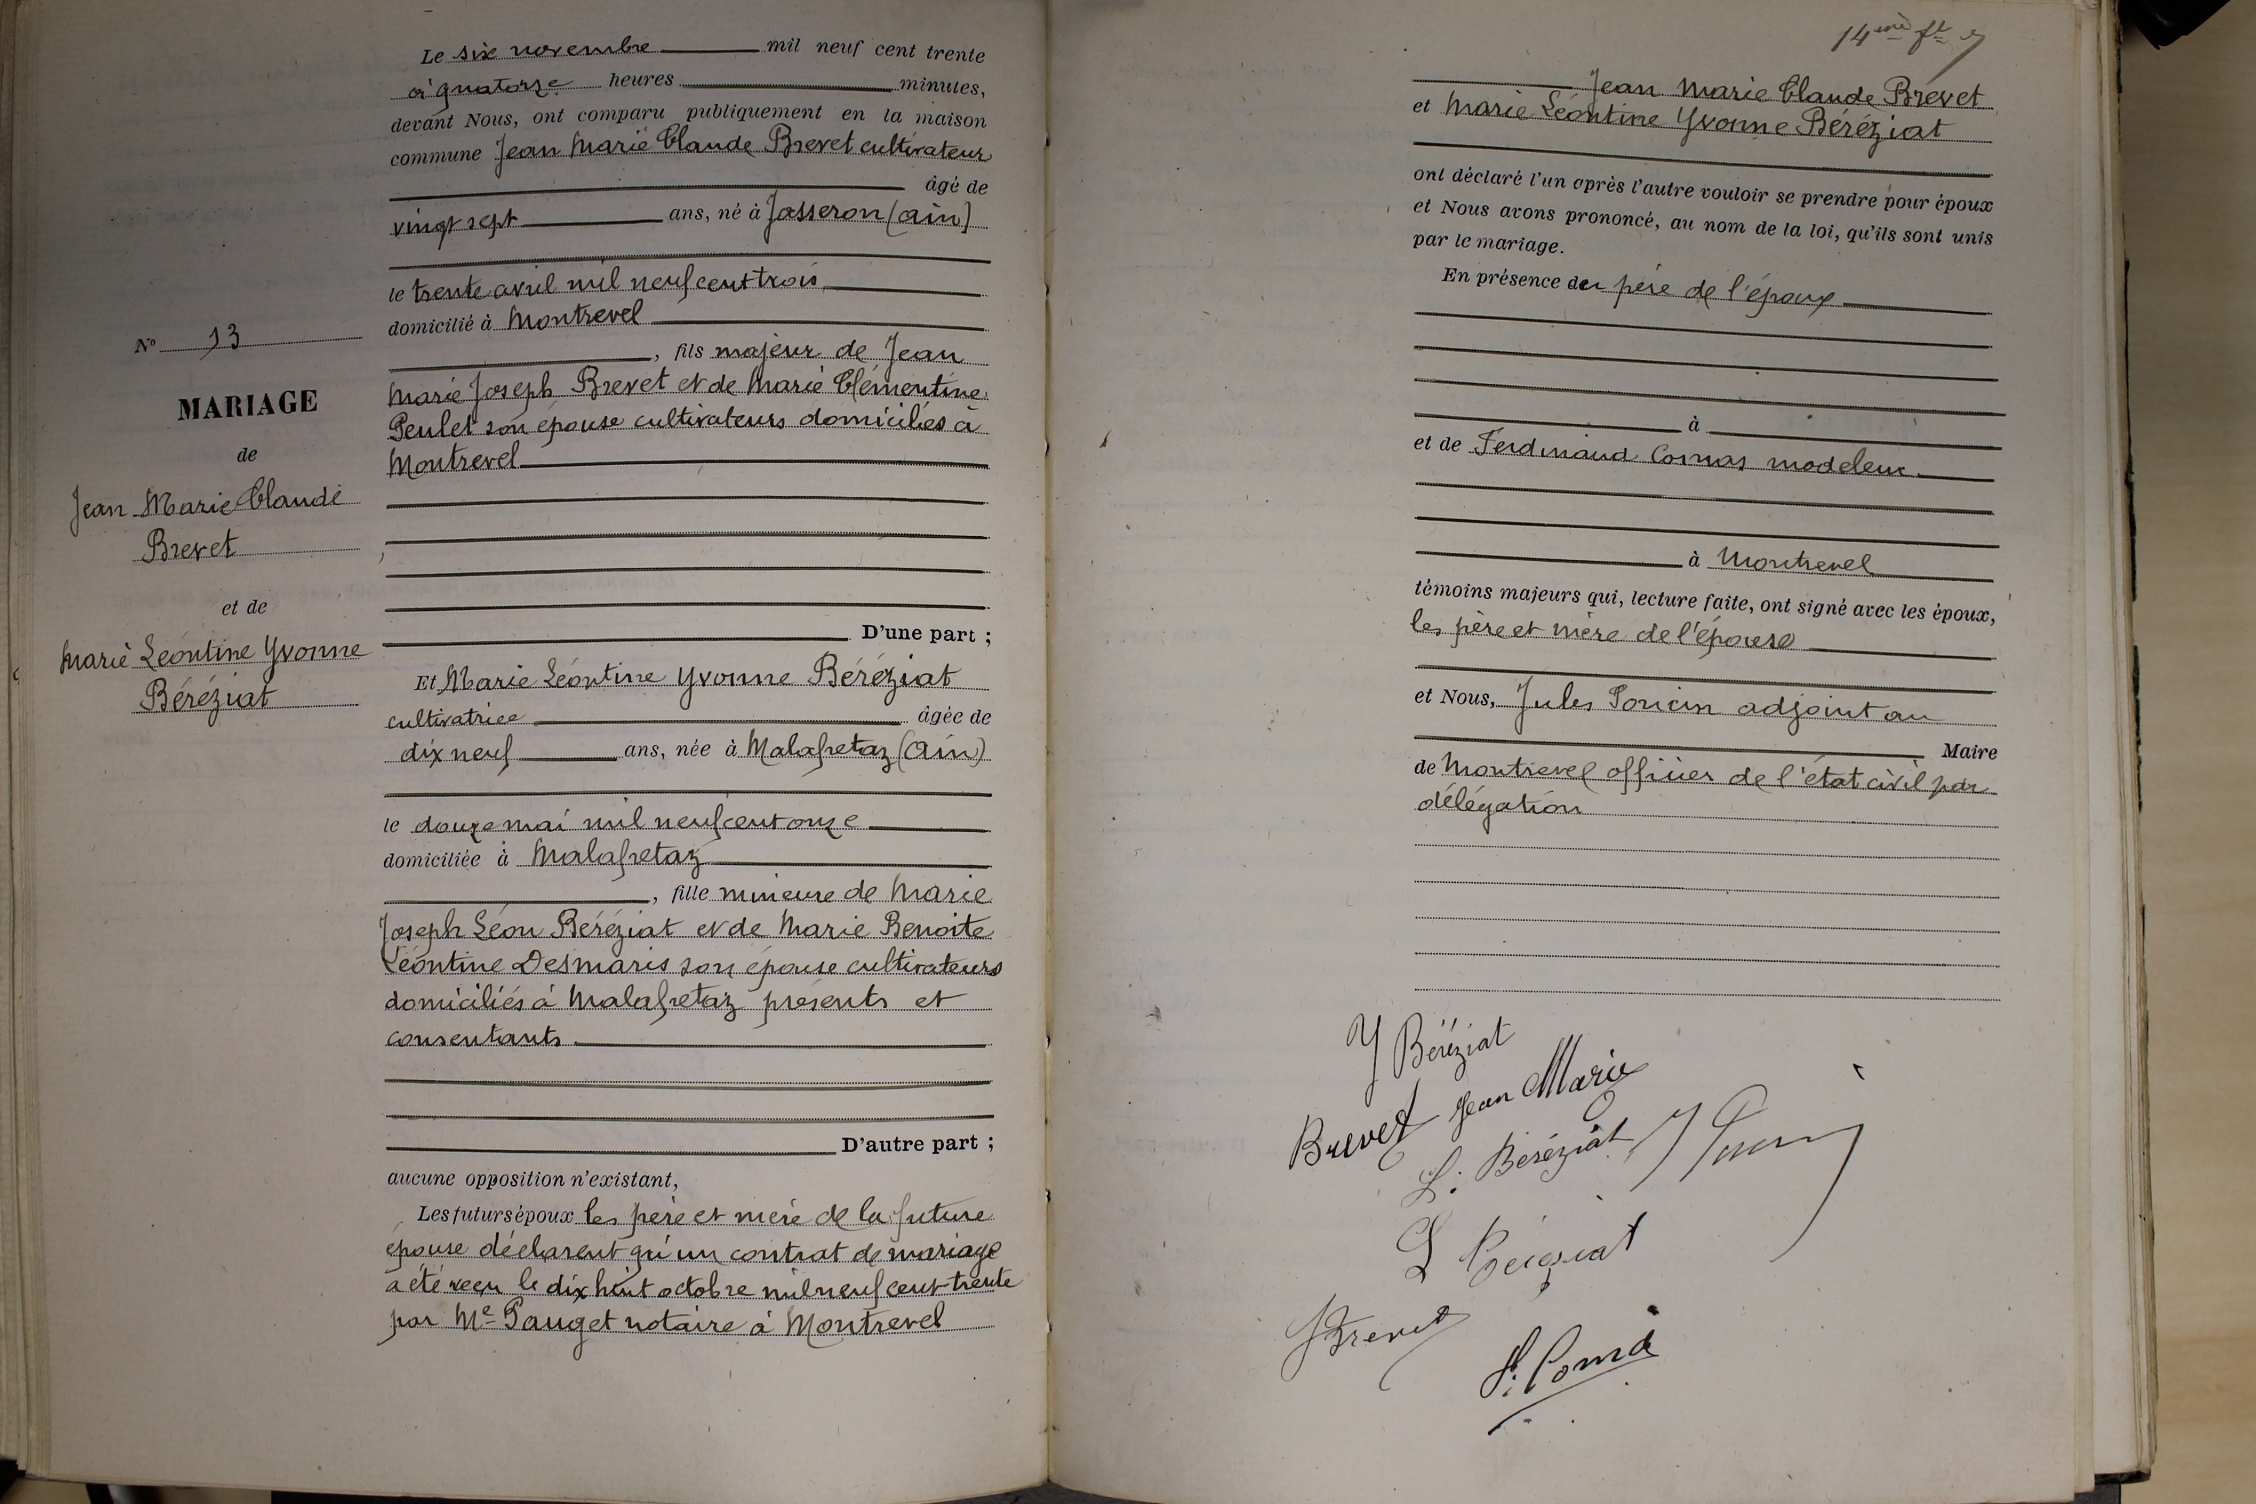 N° 13
MARIAGE
de
Jean Marie Claude
Brevet
et de
Marie Léontine Yvonne
Béréziat
Le six novembre mil neuf cent trente
à quatorze heures minutes,
devant Nous, ont comparu publiquement en la maison
commune Jean Marie Claude Brevet cultivateur
âgé de
vingt sept ans, né à Jasseron (Ain)
le trente avril mil neuf cent trois
domicilié à Montrevel
, fils majeur de Jean
Marie Joseph Brevet et de Marie Clémentine
Peulet son épouse cultivateurs domiciliés à
Montrevel
D'une part ;
Et Marie Léontine Yvonne Béréziat
cultivatrice âgée de
dix neuf ans, née à Malafretaz (Ain)
le douze mai mil neuf cent onze
domiciliée à Malafretaz
, fille mineure de Marie
Joseph Léon Béréziat et de Marie Benoite
Léontine Desmaris son épouse cultivateurs
domiciliés à Malafretaz présents et
consentants
D'autre part ;
aucune opposition n'existant,
Les futurs époux les père et mère de la future
épouse déclarent qu'un contrat de mariage
a été reçu le dix huit octobre mil neuf cent trente
par Me Pauget notaire à Montrevel
14ème ft
Jean Marie Claude Brevet
et Marie Léontine Yvonne Béréziat
ont déclaré l'un après l'autre vouloir se prendre pour époux
et Nous avons prononcé, au nom de la loi, qu'ils sont unis
par le mariage.
En présence du père de l'époux
à
et de Ferdinand Comas modeleur
à Montrevel
témoins majeurs qui, lecture faite, ont signé avec les époux,
les père et mère de l'épouse
et Nous, Jules adjoint au
Maire
de Montrevel officier de l'état civil par
délégation
Y Béréziat
Brevet Jean Marie
L. Béréziat
L Béréziat
J Brevet
F. Coma